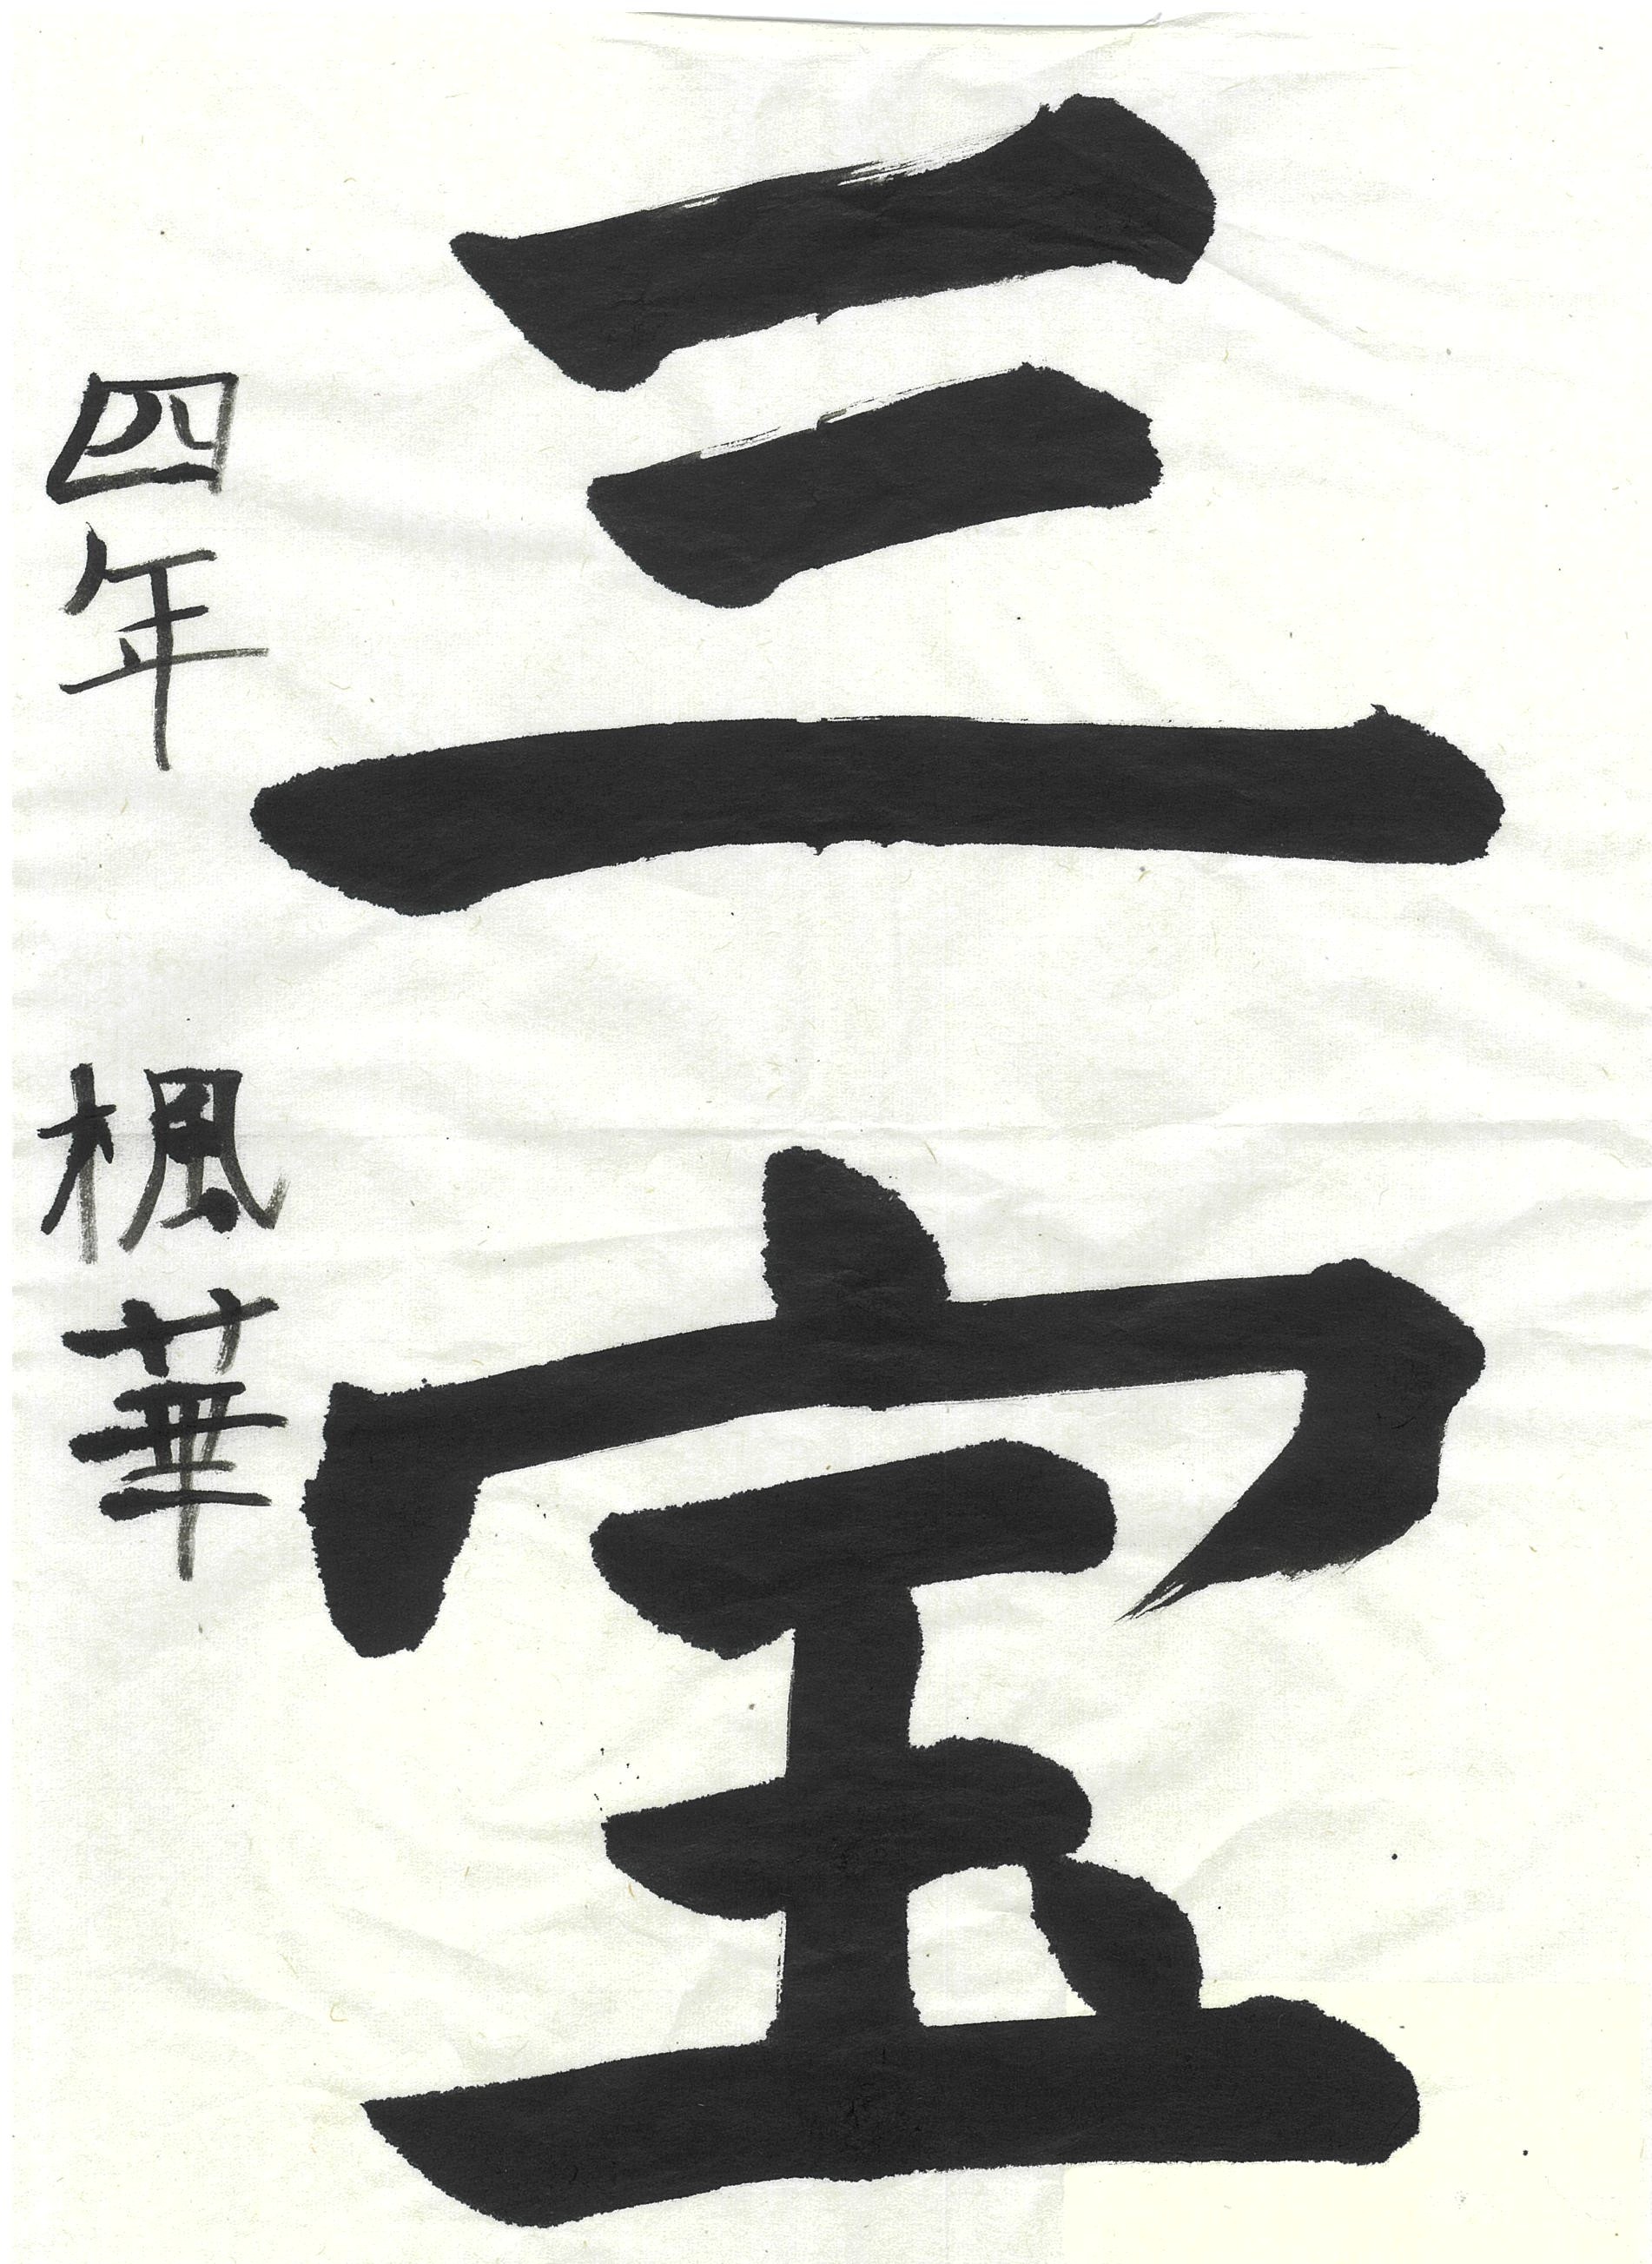 三宝
四年 楓華